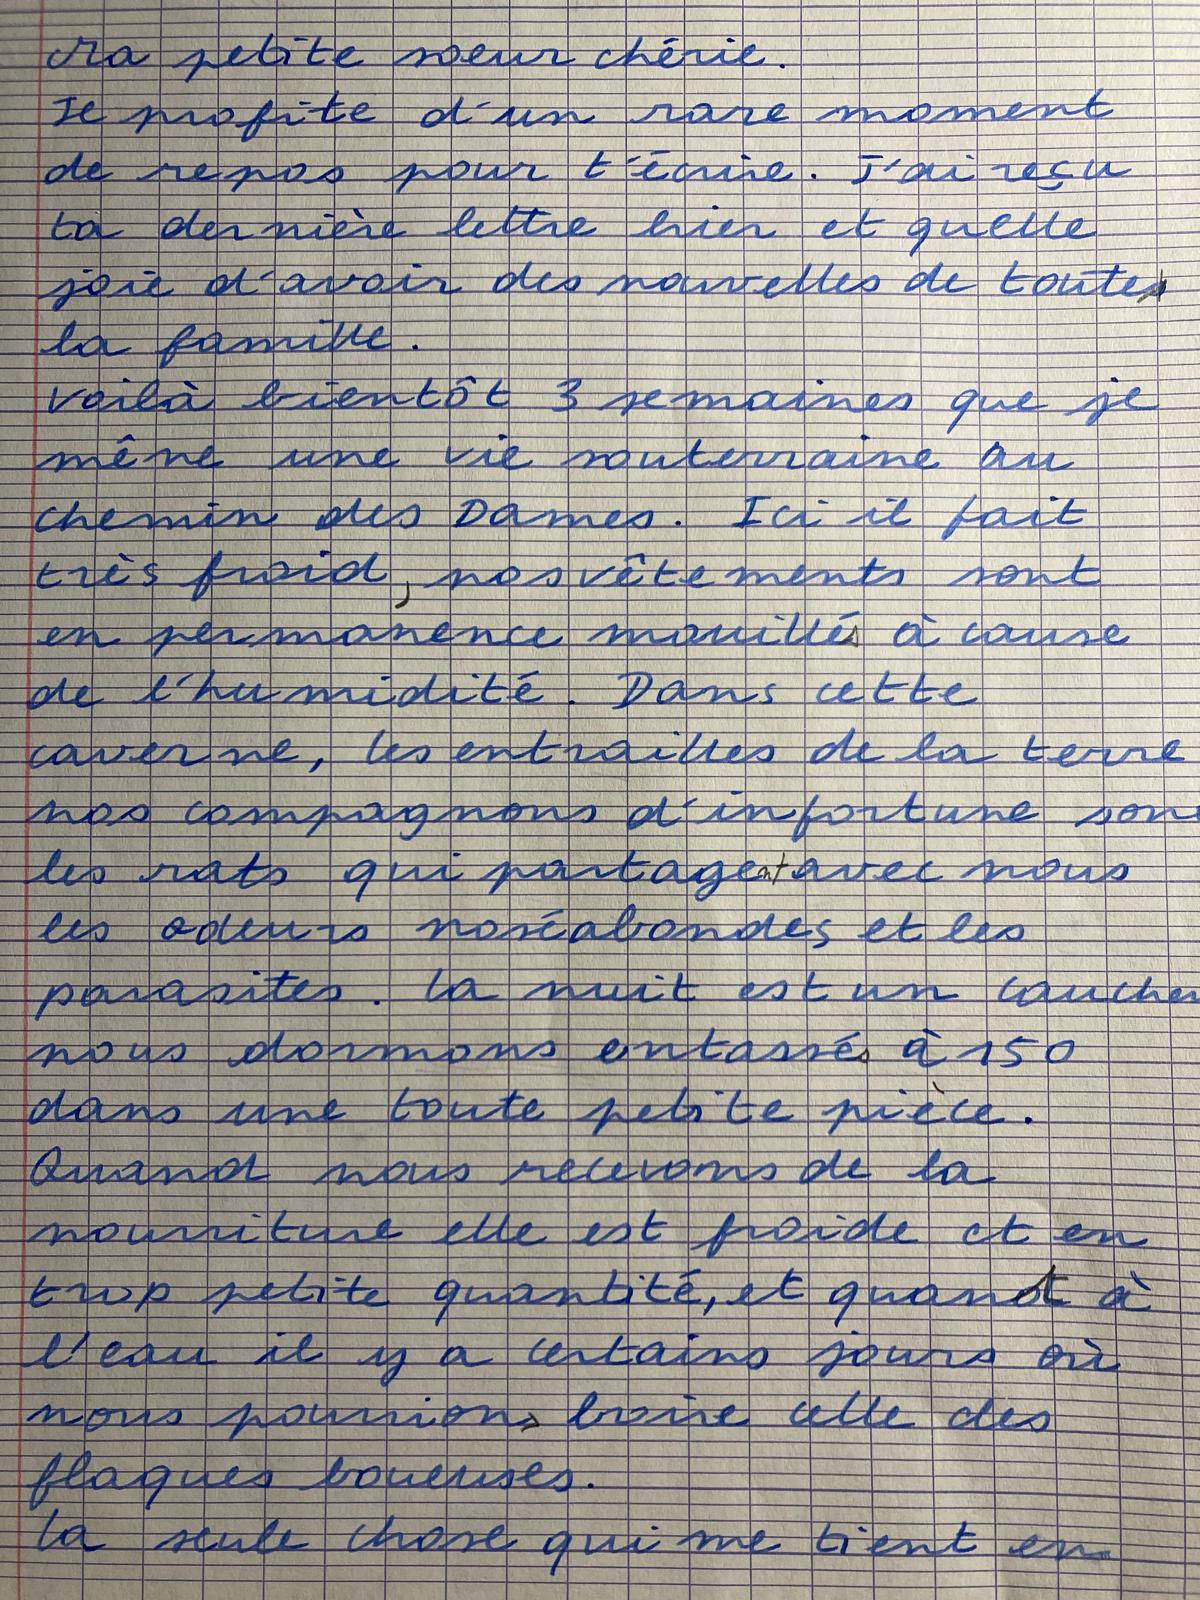 Ma petite soeur chérie.
Je profite d'un rare moment
de repos pour t'écrire. J'ai reçu
ta dernière lettre hier et quelle
joie d'avoir des nouvelles de toutes
la famille.
Voilà bientôt 3 semaines que je
mêne une vie souterraine au
chemin des Dames. Ici il fait
très froid, nos vêtements sont
en permanence mouillés à cause
de l'humidité. Dans cette
caverne, les entrailles de la terre
nos compagnons d'infortune son
les rats qui partagent avec nous
les odeurs noséabondes et les
parasites. La nuit est un cauche
nous dormons entassés à 150
dans une toute petite pièce.
Quand nous recevons de la
nourriture elle est froide et en
trop petite quantité, et quant à
l'eau il y a certains jours où
nous pourrions boire celle des
flaques boueuses.
La seule chose qui me tient en